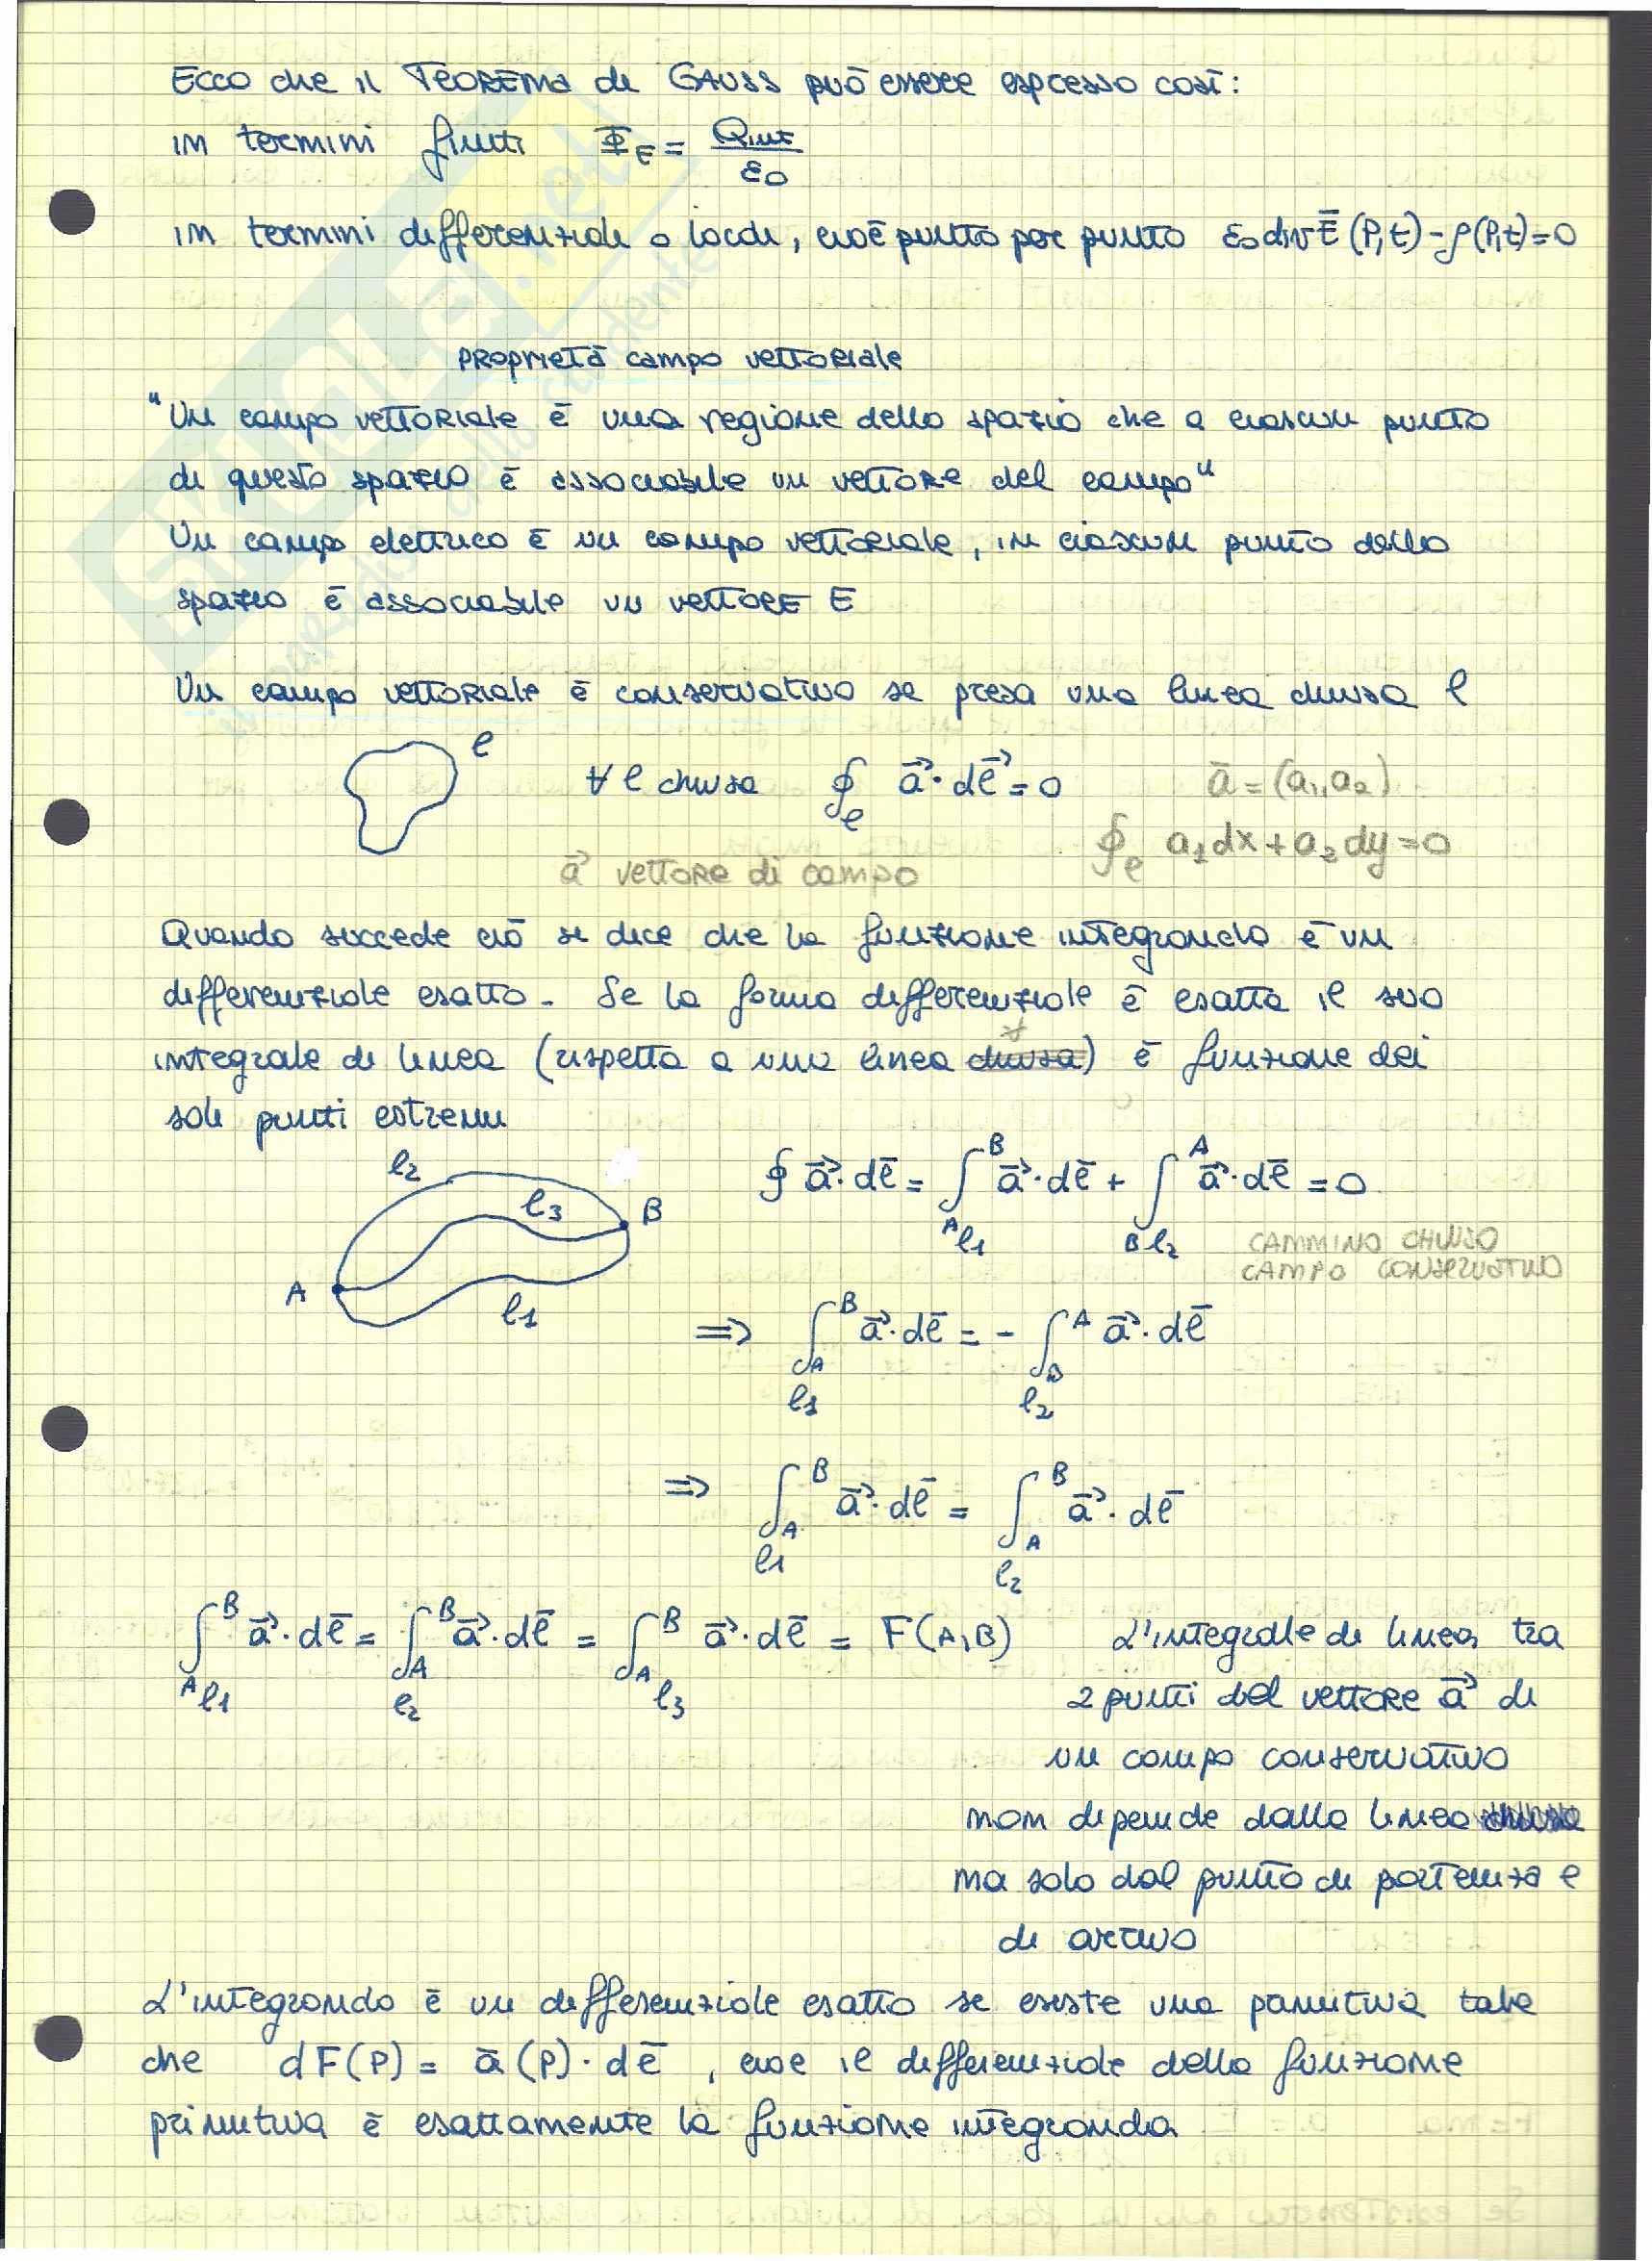 Ecco che il TEOREMA di GAUSS può essere espresso così:
in termini finiti Φ_E = Qint/ε0
in termini differenziali o locali, cioè punto per punto ε0 div Ē (P,t) - ρ(P,t) = 0
PROPRIETÀ campo VETTORIALE
"Un campo vettoriale è una regione dello spazio che a ciascun punto
di questo spazio è associabile un vettore del campo"
Un campo elettrico è un campo vettoriale, in ciascun punto dello
spazio è associabile un vettore E
Un campo vettoriale è conservativo se presa una linea chiusa l
l
∀ l chiusa ∮_l a⃗ · dl⃗ = 0 ā = (a1, a2)
∮_l a1dx + a2dy = 0
a⃗ vettore di campo
Quando succede ciò si dice che la funzione integranda è un
differenziale esatto. Se la forma differenziale è esatta il suo
integrale di linea (rispetto a una linea chiusa) è funzione dei
soli punti estremi
l2 l3 B A l1
∮ a⃗ · dl̄ = ∫_A l1^B a⃗ · dl̄ + ∫_B l2^A a⃗ · dl̄ = 0
CAMMINO CHIUSO
CAMPO CONSERVATIVO
⇒ ∫_A l1^B a⃗ · dl̄ = - ∫_B l2^A a⃗ · dl̄
⇒ ∫_A l1^B a⃗ · dl̄ = ∫_A l2^B a⃗ · dl̄
∫_A l1^B a⃗ · dl̄ = ∫_A l2^B a⃗ · dl̄ = ∫_A l3^B a⃗ · dl̄ = F(A,B) L'integrale di linea tra
2 punti del vettore a⃗ di
un campo conservativo
non dipende dalla linea
ma solo dal punto di partenza e
di arrivo
L'integrando è un differenziale esatto se esiste una primitiva tale
che dF(P) = ā(P) · dl̄, cioè il differenziale della funzione
primitiva è esattamente la funzione integranda